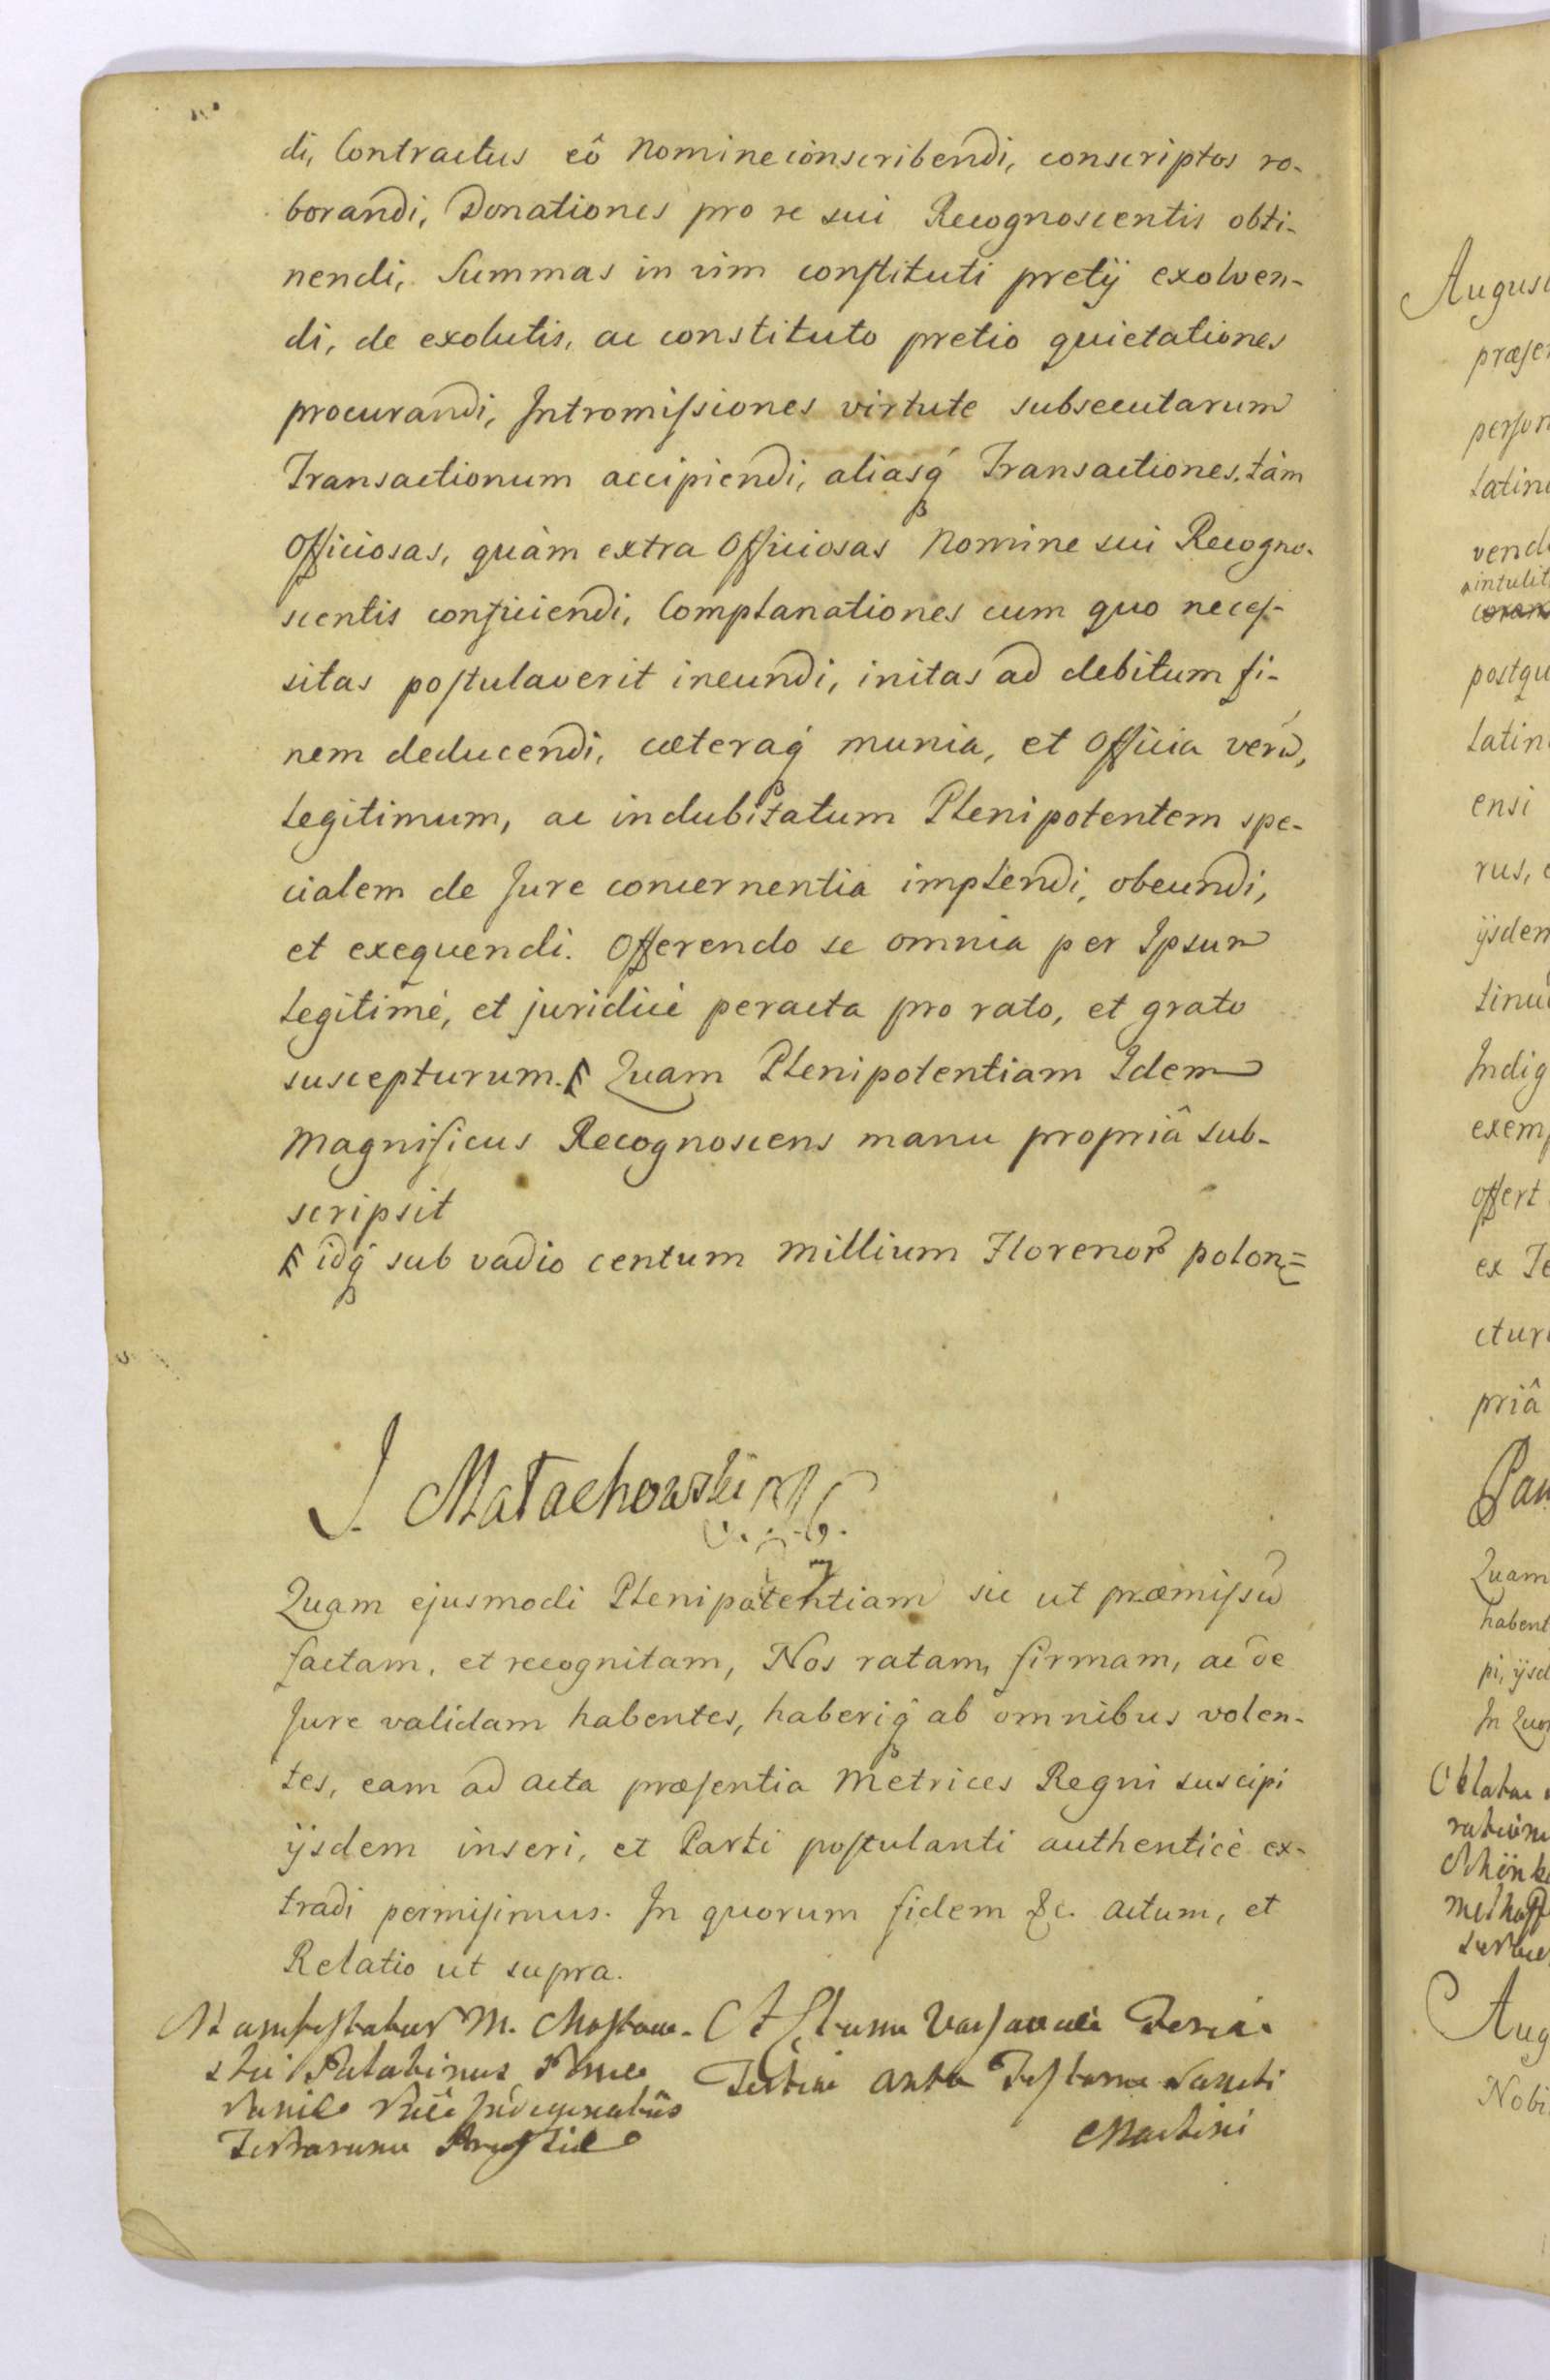 di, Contractus eô Nomine conscribendi, conscriptos ro-
borandi, Donationes pro re sui Recognoscentis obti-
nendi, Summas in vim constituti pretij exolven-
di, de exolutis, ac constituto pretio quietationes
procurandi, Intromissiones virtute subsecutarum
Transactionum accipiendi, aliasq́ Transactiones, tàm
Officiosas, quàm extra Officiosas Nomine sui Recogno-
scentis conficiendi, Complanationes cum quo neces-
sitas postulaverit ineundi, initas ad debitum fi-
nem deducendi, cæteraq́ munia, et Officia verū,
Legitimum, ac indubitatum Plenipotentem spe-
cialem de Jure concernentia implendi, obeundi,
et exequendi. Offerendo se omnia per Ipsum
Legitimè, et juridicè peracta pro rato, et grato
suscepturum. Quam Plenipotentiam Idem
Magnificus Recognoscens manu propriâ sub-
scripsit
idq́ sub vadio centum Millium Florenor̃ polon=
J Małachowski
Quam ejusmodi Plenipotentiam sic ut præmissū
factam, et recognitam, Nos ratam, firmam, ac de
Jure validam habentes, haberiq́ ab omnibus volen-
tes, eam ad Acta præsentia Metrices Regni suscipi
ijsdem inseri, et Parti postulanti authenticè ex-
tradi permisimus. In quorum fidem &c. Actum, et
Relatio ut supra.
Manifestatur M. Mostow-
ski Palatinus Pome
raniæ Indigenatûs
Terrarum Prussiæ
Actum Varsaviæ Feriâ
Tertiâ Ante Festum Sancti
Martini
Augus
præse
person
Latin
vend
intulit
postqu
Latin
ensi
rus,
ijsdem
tinu
Indig
exem
offert
ex Te
ctur
priâ
Pau
Quam
habent
pi, ijsd
In Quo
Oblatæ
ration
Aug
Nobi